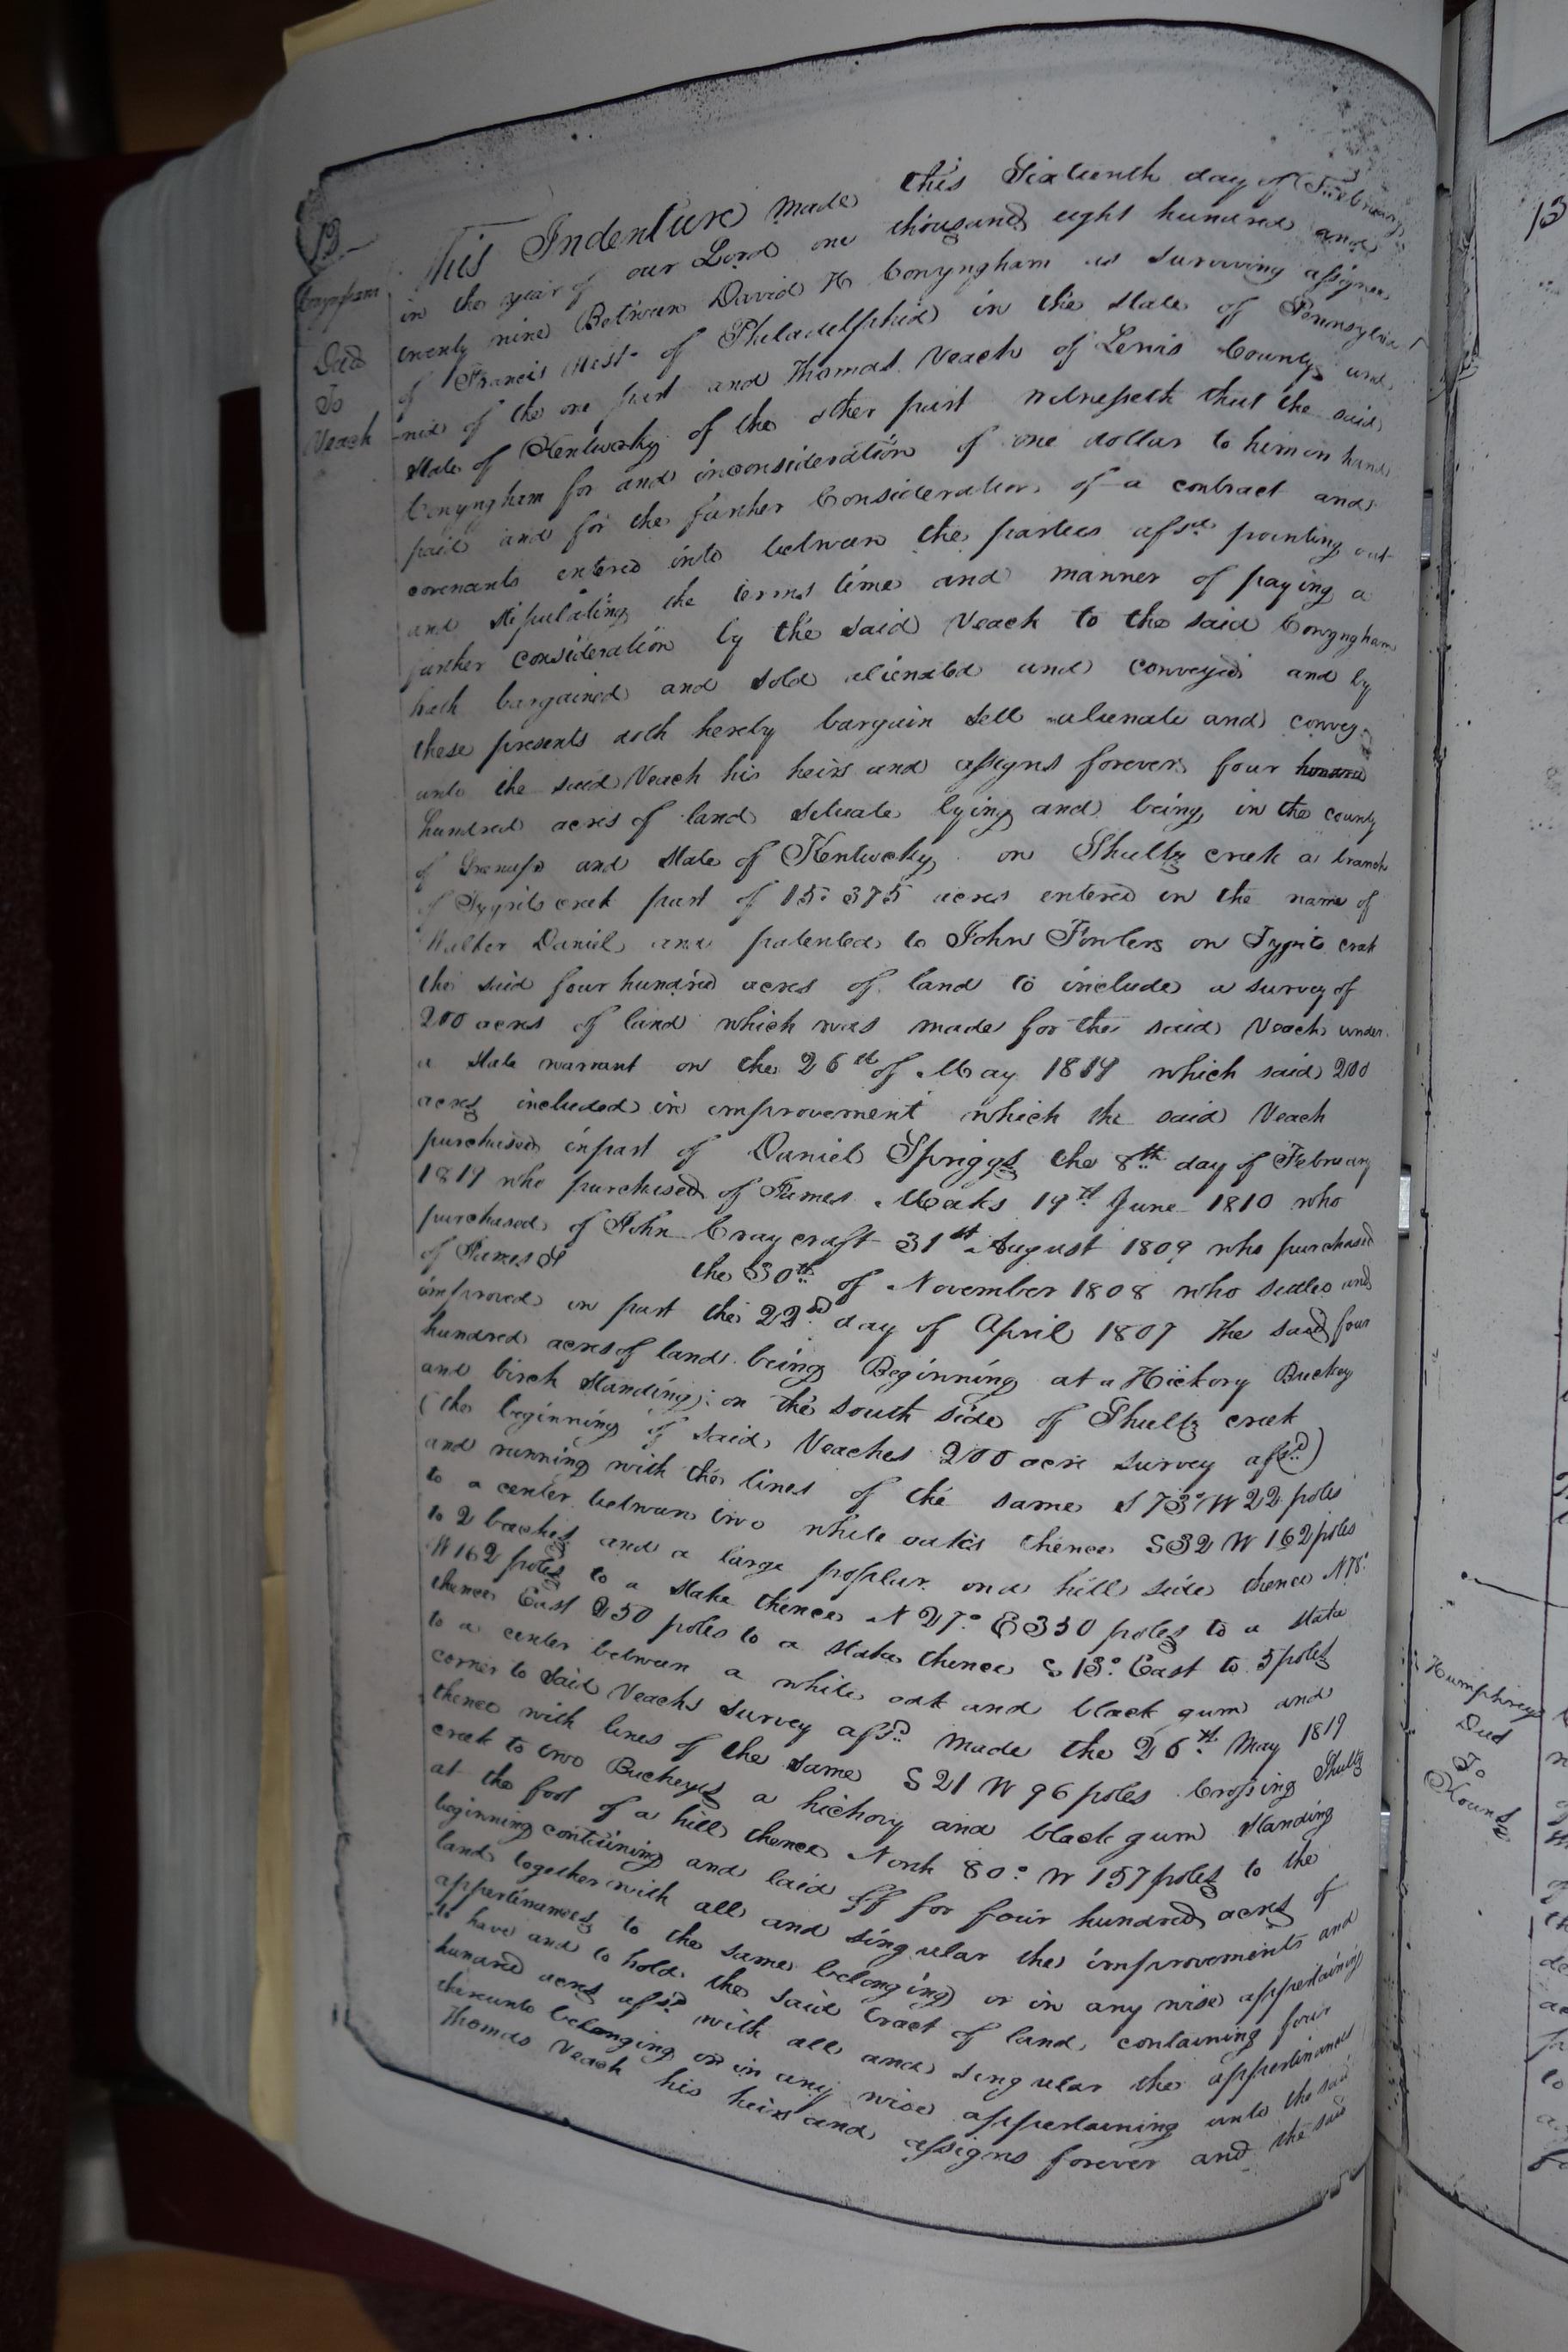 12
Conyngham
Deed
To
Veach
This Indenture made this Sixteenth day of February
in the year of our Lord one thousand eight hundred and
twenty nine Between David H Conyngham as surviving assignee
of Francis West of Philadelphia in the state of Pennsylva
nia of the one part and Thomas Veach of Lewis County and
state of Kentucky of the other part witnesseth that the said
Conyngham for and inconsideration of one dollar to him in hand
paid and for the further Consideration of a contract and
covenants entered into between the parties afsd pointing out
and stipulating the terms time and manner of paying a
further consideration by the said Veach to the said Conyngham
hath bargained and sold alienated and conveyed and by
these presents doth hereby bargain sell alienate and convey
unto the said Veach his heirs and assigns forever four
hundred acres of land situate lying and being in the county
of Greenup and state of Kentucky on Shultz creek a branch
of Tygrits creek part of 15.375 acres entered in the name of
Walker Daniel and patented to John Fowlers on Tygrits creek
the said four hundred acres of land to include a survey of
200 acres of land which was made for the said Veach under
a state warrant on the 26th of May 1819 which said 200
acres included in improvement which the said Veach
purchised inpart of Daniel Spriggs the 8th day of February
1819 who purchased of James Meaks 19th June 1810 who
purchased of John Craycraft 31st August 1809 who purchased
of James St the 30th of November 1808 who settled and
improved in part the 22nd day of April 1807 The said four
hundred acres of land being Beginning at a Hickory Buckey
and birch standing on the south side of Shultz creek
(the beginning of said Veaches 200 acre survey afsd)
and running with the lines of the same S 73° W 22 poles
to a center between two white oaks thence S32 W 162 poles
to 2 beeches and a large poplar on a hill side thence N75°
W 162 poles to a stake thence N 27° E 350 poles to a stake
thence East 250 poles to a stake thence S 13° East to 5 poles
to a center between a white oak and black gum and
corner to said Veachs survey afsd made the 26th May 1819
thence with lines of the same S 21 W 96 poles Crossing Shultz
creek to two Buckeyes a hickory and black gum standing
at the foot of a hill thence North 80° W 157 poles to the
beginning containing and laid off for four hundred acres of
land together with all and singular the improvements and
appertinances to the same belonging or in any wise appertaining
to have and to hold the said tract of land containing four
hundred acres afsd with all and singular the appertinances
thereunto belonging or in any wise appertaining unto the said
Thomas Veach his heirs and assigns forever and the said
13
Humphreys
Deed
To